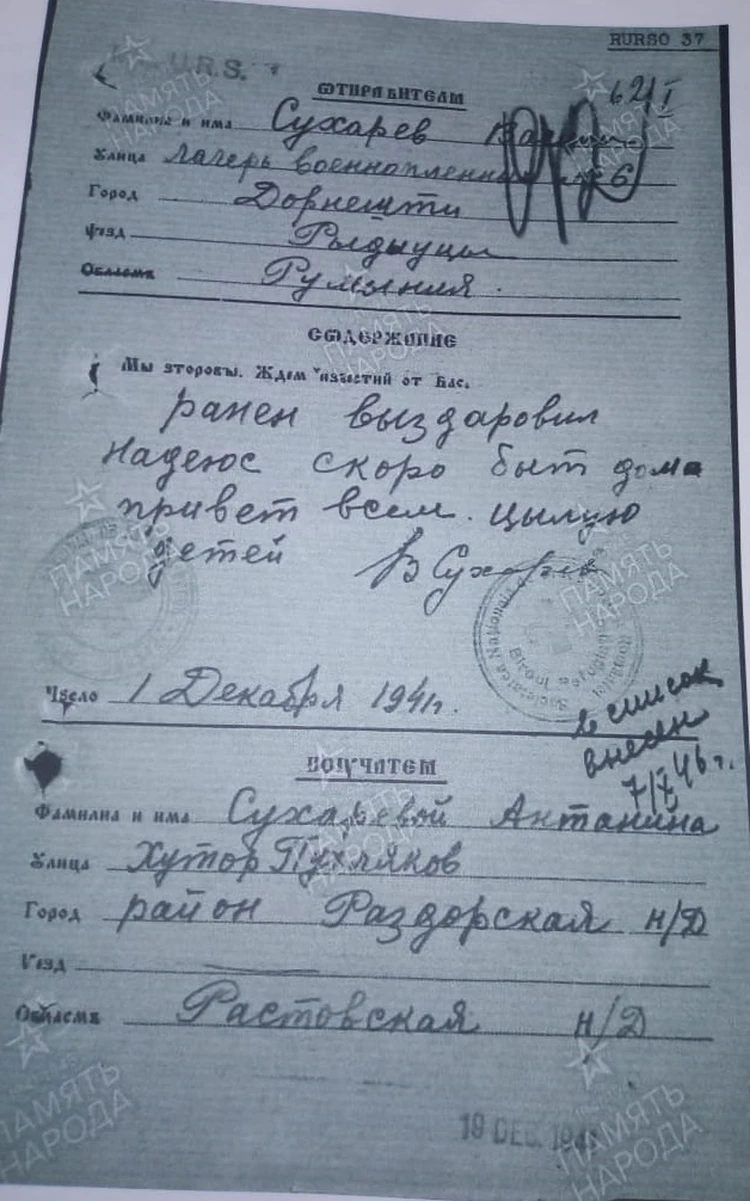 RURSO 37
U.R.S.
ѠТПРАВИТЕЛЫ
621
Фамилиа и има Сухарев
Улица лагерь военнопленных № 6
Город Дорнешти
Уезд Рыдыуцы
Областъ Румыния.
СѠДЕРЖАНИЕ
Мы здоровы. Ждем известий от Вас.
ранен выздаровил
надеюс скоро быт дома
привет всем. цылую
детей В Сухарев
Число 1 Декабря 1941г.
в список
внесен
46 г.
ПОЛУЧАТЕЛИ
Фамилиа и има Сухаревой Антанина
Улица Хутор Пухляков
Город район Раздорская н/Д
Уезд
Областъ Растовская н/Д
19 DEC. 1941
ПАМЯТЬ
НАРОДА